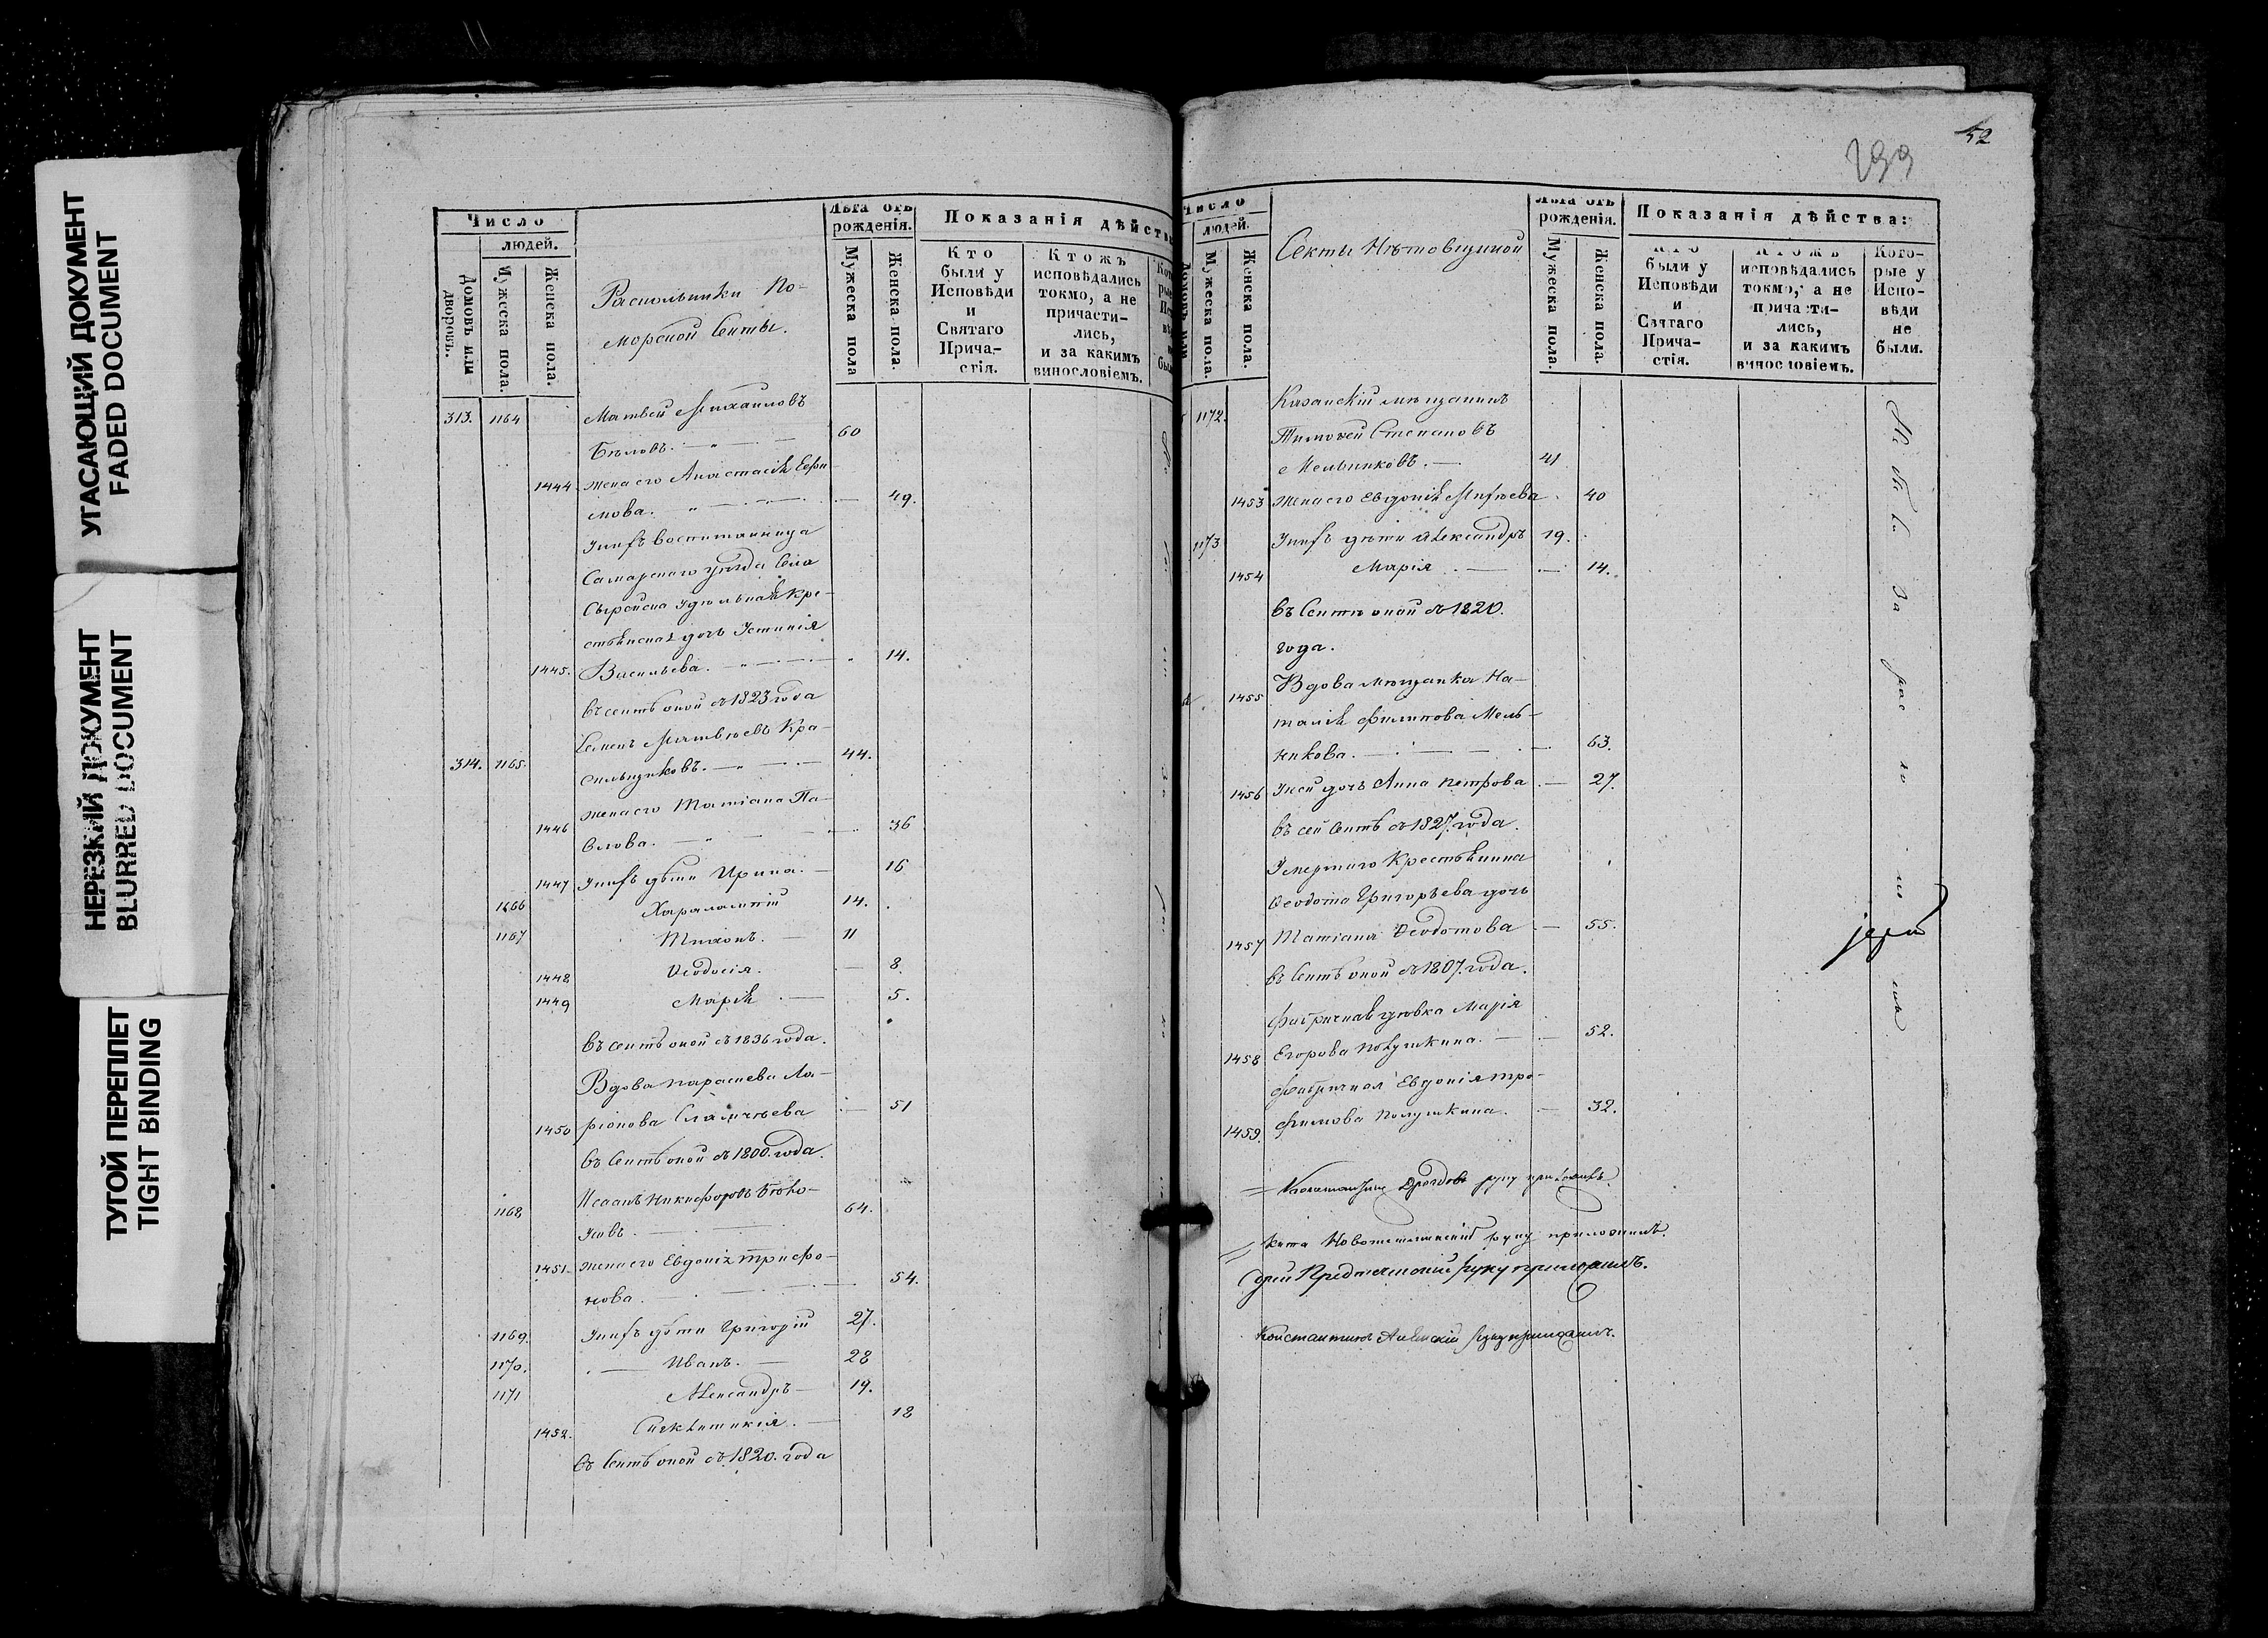 УГАСАЮЩИЙ ДОКУМЕНТ
FADED DOCUMENT
НЕРЕЗКИЙ ДОКУМЕНТ
BLURRED DOCUMENT
ТУГОЙ ПЕРЕПЛЕТ
TIGHT BINDING
Число
людей.
Домовъ или дворовъ.
Мужеска пола.
Женска пола.
Раскольники По-
морской Секты.
Лѣта отъ рожденія.
Мужеска пола
Женска пола.
Показанія дѣйств
Кто были у Исповѣди и Святаго Прича-стія.
Ктожъ исповѣдались токмо, а не причасти-лись, и за какимъ винословіемъ.
313. 1164 Матвей Михаиловъ
Бѣловъ. 60
1444. жена его Анастасія Ефи-
мова. 49.
У нихъ воспитанница
Самарскаго уѣзда села
Сырейска удѣльная кре-
стьянская дочь Устинія
1445. Васильева. 14.
въ сектѣ оной съ 1823 года
Семенъ Матвѣевъ Кра-
314. 1165. сильщиковъ. 44.
жена его Татіана Па-
1446 влова. 36
1447 У нихъ дѣти Ирина. 16
1166 Харалампій 14.
1167 Тихонъ. 11
1448 Ѳеодосія. 8.
1449 Марія 5.
въ сектѣ оной съ 1836 года.
Вдова Параскева Ла-
1450 ріонова 51
въ сектѣ оной съ 1800. года.
1168 Исаакъ Никифоровъ 64.
1451. жена его Евдокія Трифо-
нова. 54.
1169. У нихъ дѣти Григорій 27.
1170. Иванъ. 28
1171 Александръ 19.
1452. Синклитикія. 18
въ сектѣ оной съ 1820. года
52
299
Число
людей.
Мужеска пола.
Женска пола.
Секты Нѣтовщиной
Лѣта отъ рожденія.
Мужеска пола.
Женска пола.
Показанія дѣйства:
Кто были у Исповѣди и Святаго Прича-стія.
Ктожъ исповѣдались токмо, а не причасти-лись, и за какимъ винословіемъ.
Кото-рые у Испо-вѣди не были.
1172. Казанскій мѣщанинъ
Тимофей Степановъ
Мельниковъ. 41
1453 жена его Евдокія 40
1173 У нихъ дѣти Александръ 19.
1454 Марія 14.
въ сектѣ оной съ 1820.
года.
1455 Вдова мѣщанка На-
талія Филипова Мель-
никова. 63.
1456 У ней дочь Анна Петрова 27.
въ сей сектѣ съ 1827. года.
Умершаго крестьянина
Ѳеодота Григорьева дочь
1457 Татіана Ѳеодотова 55.
въ сектѣ оной съ 1807. года.
дѣвка Марія
1458 Егорова Полушкина. 52.
Евдокія Тро-
1459. фимова Полушкина. 32.
За рас ко ло мъ
руку приложилъ.
руку приложилъ.
Предтеченскій руку приложилъ.
Константинъ руку приложилъ.